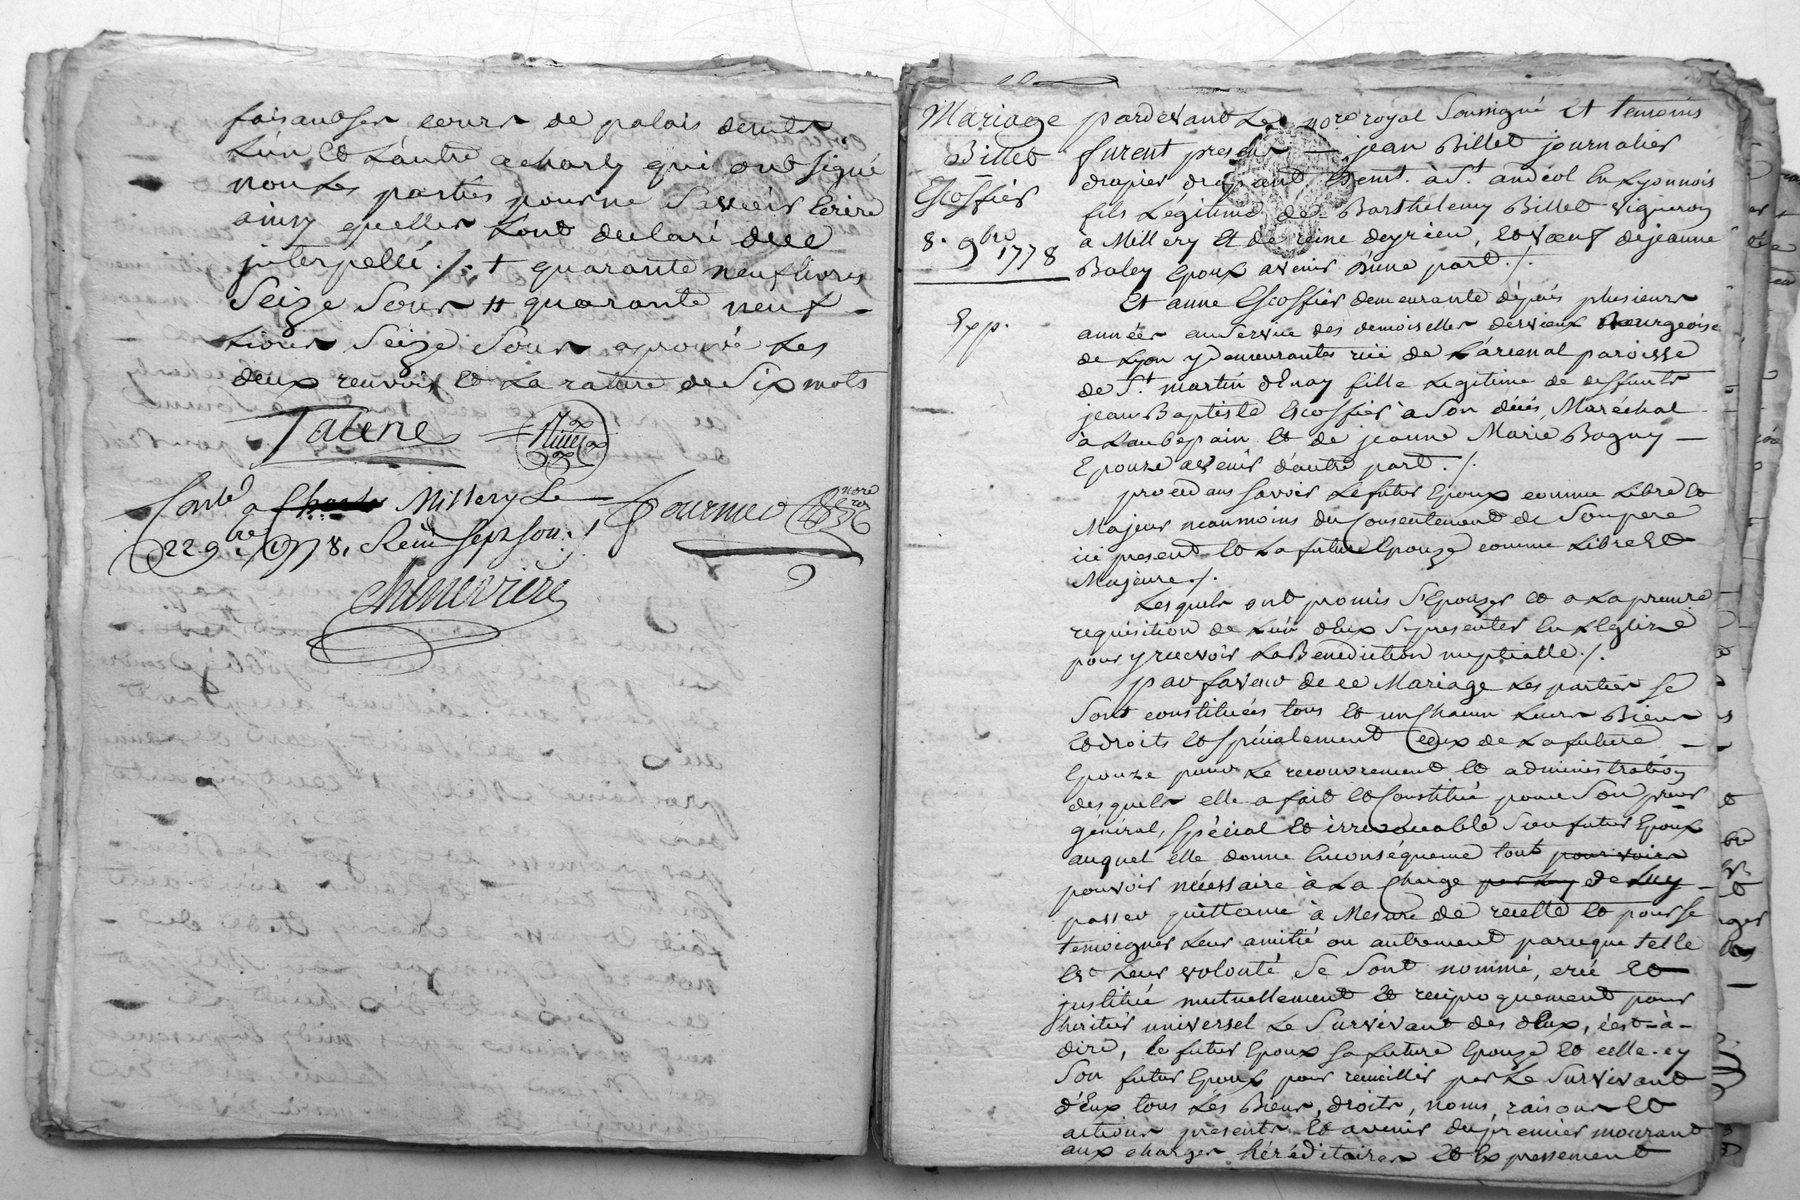 faisant ses cours de palais demts
L'un et L'autre a charly qui ont signé
non Les parties pour ne Savoir Ecrire
ainsy quelles L'ont declaré de ce
jnterpellé ./. + quarante neuf livres
Seize Sous # quarante neuf -
Livres Seize Sous aprouvé Les
deux renvois et La rature de Six mots
Tabine
Conlé a Charly Millery Le
22 9bre 1778, Reçu sept sous ./
Fournier nore
Chinevriere
Mariage
Billet
Escoffier
8. 9bre 1778
Exp.
pardevant Le nore royal Soussigné Et temoins
furent presens — jean Billet journalier
drapier drapant demt. à St. andéol en Lyonnois
fils Légitime de Barthelemy Billet vigneron
à Millery Et de reine deyrieu, et vœuf de jeanne
Baley Epoux avenir d'une part ./.
Et anne Escoffier demeurante depuis plusieurs
années au Service des demoiselles dervieux Bourgeoise
de Lyon y demeurantes rüe de L'arcenal paroisse
de St. martin d'Enay fille Legitime de deffunts
jean Baptiste Escoffier à Son décés, Maréchal
à Laubepain et de jeanne Marie Bagny —
Epouze avenir d'autre part ./.
procedans Savoir Le futur Epoux comme Libre et
Majeur neanmoins du Consentement de Son pere
ici present et La future Epouze comme Libre Et
Majeure ./.
Lesquels ont promis S'Epouzer et a La premre
requisition de L'un d'Eux Se presenter En L'Eglize
pour y recevoir La Benediction nuptialle ./.
par faveur de ce Mariage Les parties Se
Sont constituées tous et un Chacun Leurs Biens
et droits et spécialement Ceux de La future —
Epouze pour Le recouvrement et administration
desquels elle a fait et Constitué pour Son procur
général, Spécial et irrevocable Son futur Epoux
auquel elle donne En conséquence tout pour voire
pouvoir nécessaire à La Charge par Luy de Luy —
passer quittance à Mesure de recette et pour Se
temoigner Leur amitié ou autrement parceque telle
Est Leur volonté Se Sont nommé, créé Et
jnstitué mutuellement et reciproquement pour
heritier universel Le Survivant des deux, c'est-à-
dire, le futur Epoux Sa future Epouze et celle-cy
Son futur Epoux pour recueillir par Le Survivant
d'Eux tous Les Biens, droits, noms, raisons Et
actions presents et avenir du premier mourant
aux charges héréditaires et Expressement